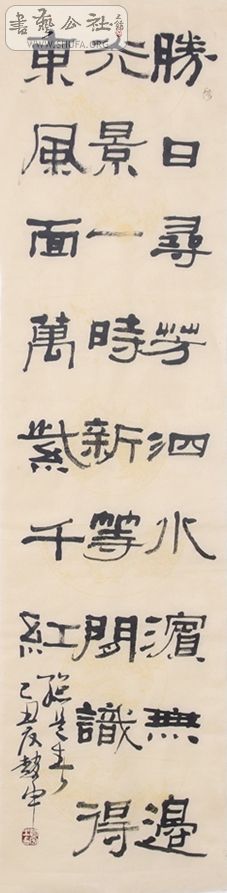 書藝公社
WWW.SHUFA.ORG
勝日尋芳泗水濱無邊
光景一時新等閒識得
東風面萬紫千紅
總是春
己丑